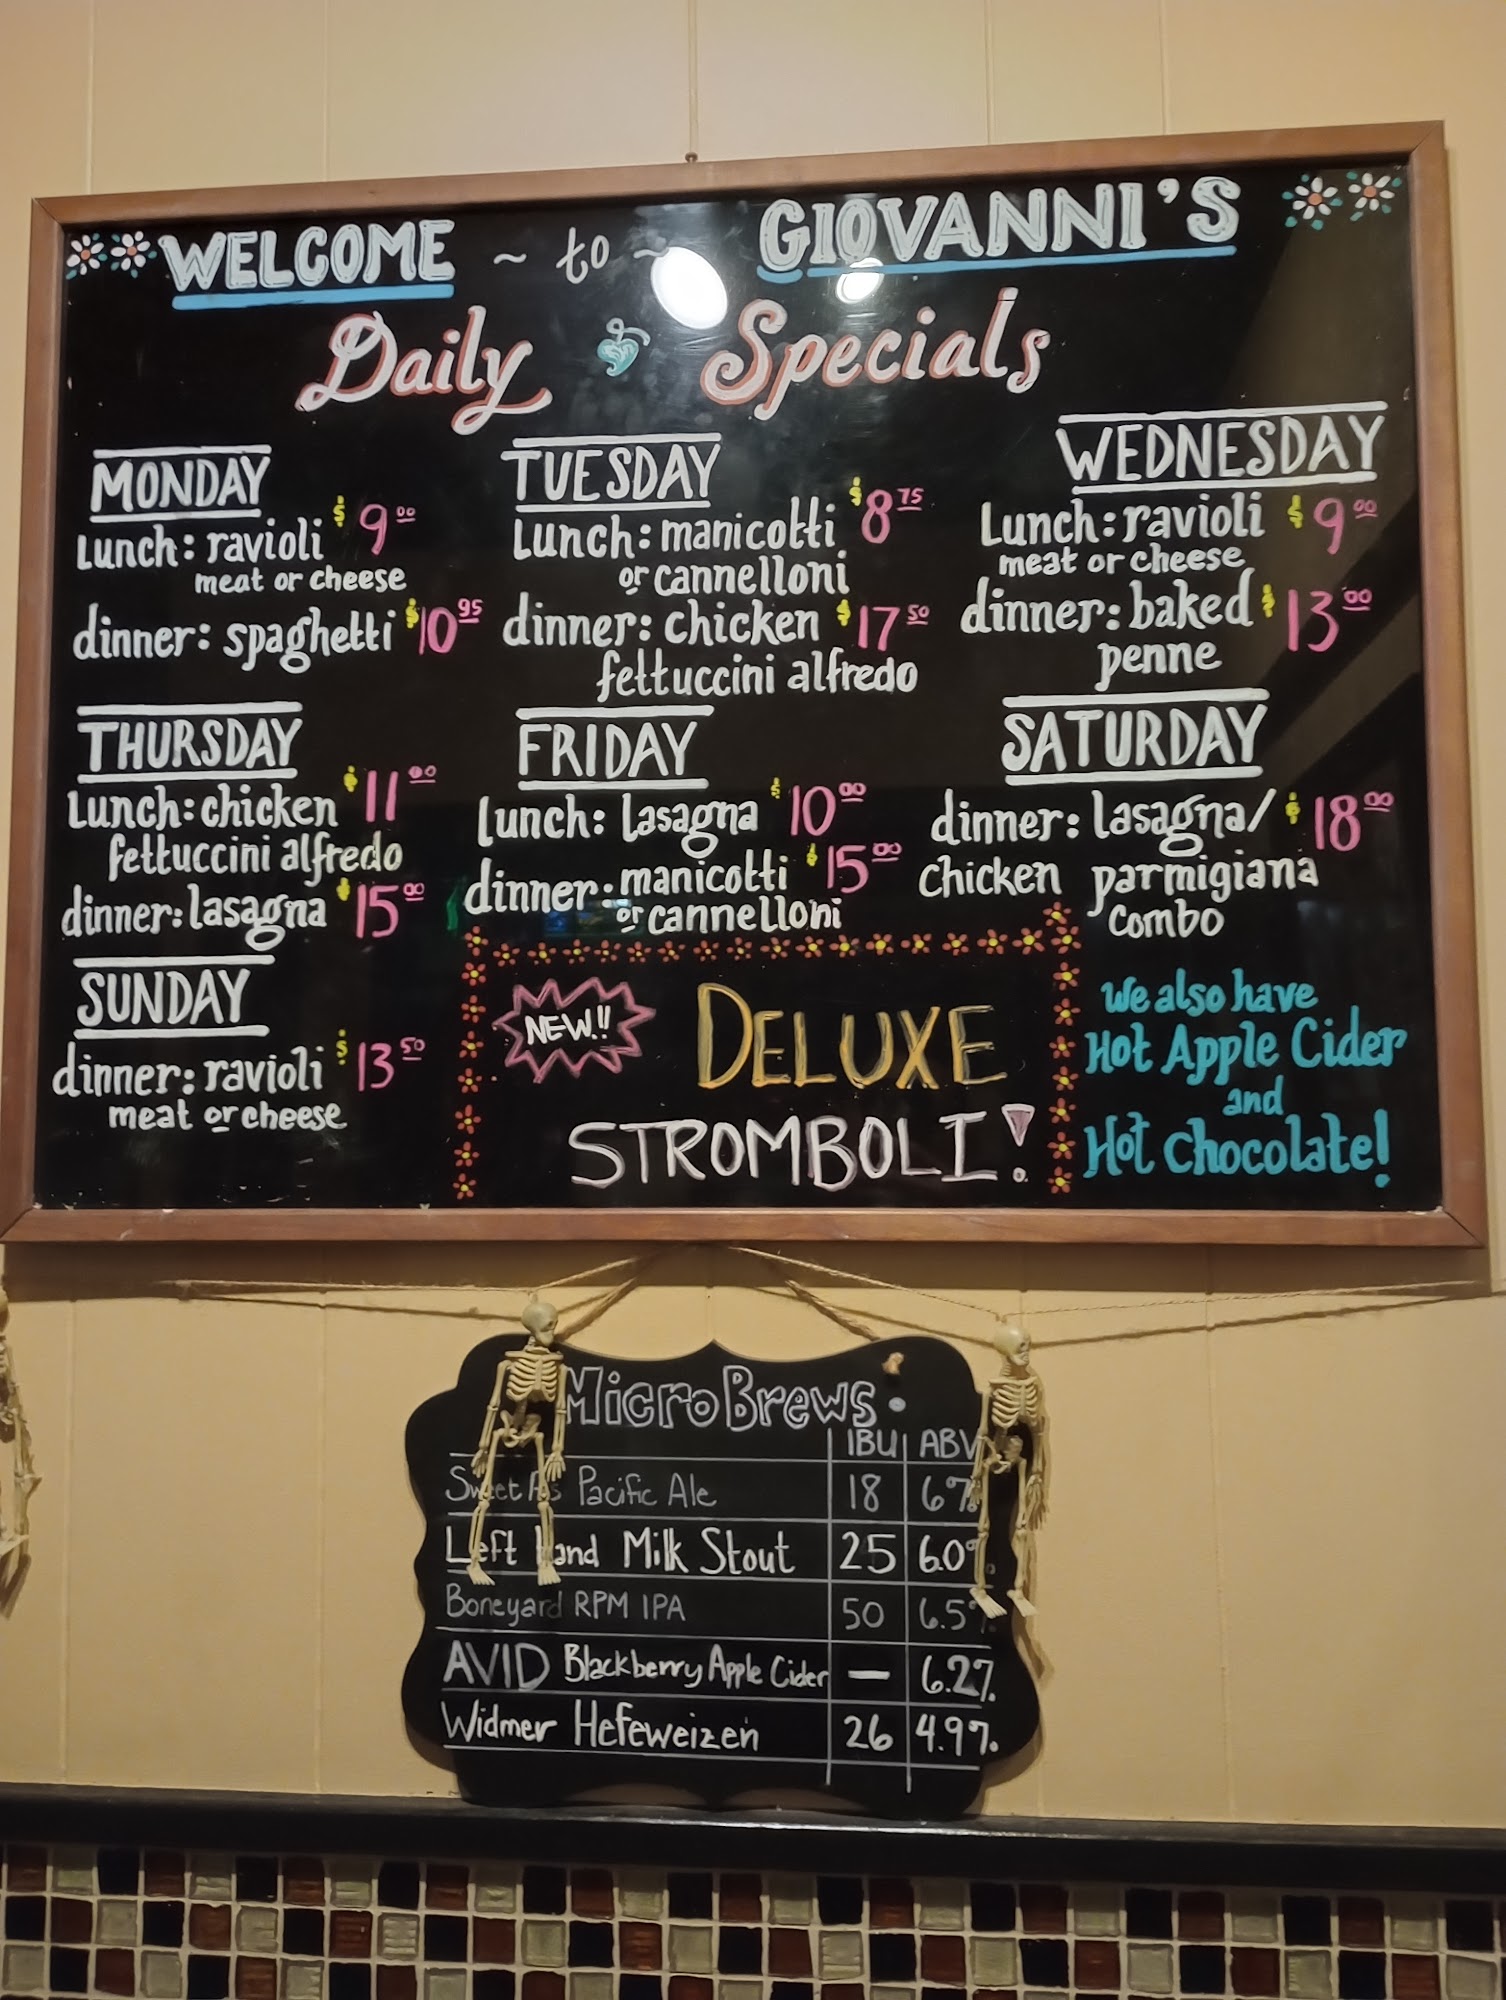 WELCOME ~ to ~ GIOVANNI'S
Daily Specials
MONDAY
Lunch: ravioli $9.00
meat or cheese
dinner: spaghetti $10.95
TUESDAY
Lunch: manicotti $8.75
or cannelloni
dinner: chicken $17.50
fettuccini alfredo
WEDNESDAY
Lunch: ravioli $9.00
meat or cheese
dinner: baked $13.00
penne
THURSDAY
Lunch: chicken $11.00
fettuccini alfredo
dinner: lasagna $15.00
FRIDAY
lunch: lasagna $10.00
dinner: manicotti $15.00
or cannelloni
SATURDAY
dinner: lasagna/ $18.00
chicken parmigiana
combo
SUNDAY
dinner: ravioli $13.50
meat or cheese
NEW!!
DELUXE
STROMBOLI!
We also have
Hot Apple Cider
and
Hot Chocolate!
MicroBrews
IBU ABV
Sweet As Pacific Ale 18 6%
Left Hand Milk Stout 25 6.0%
Boneyard RPM IPA 50 6.5%
AVID Blackberry Apple Cider — 6.2%
Widmer Hefeweizen 26 4.9%